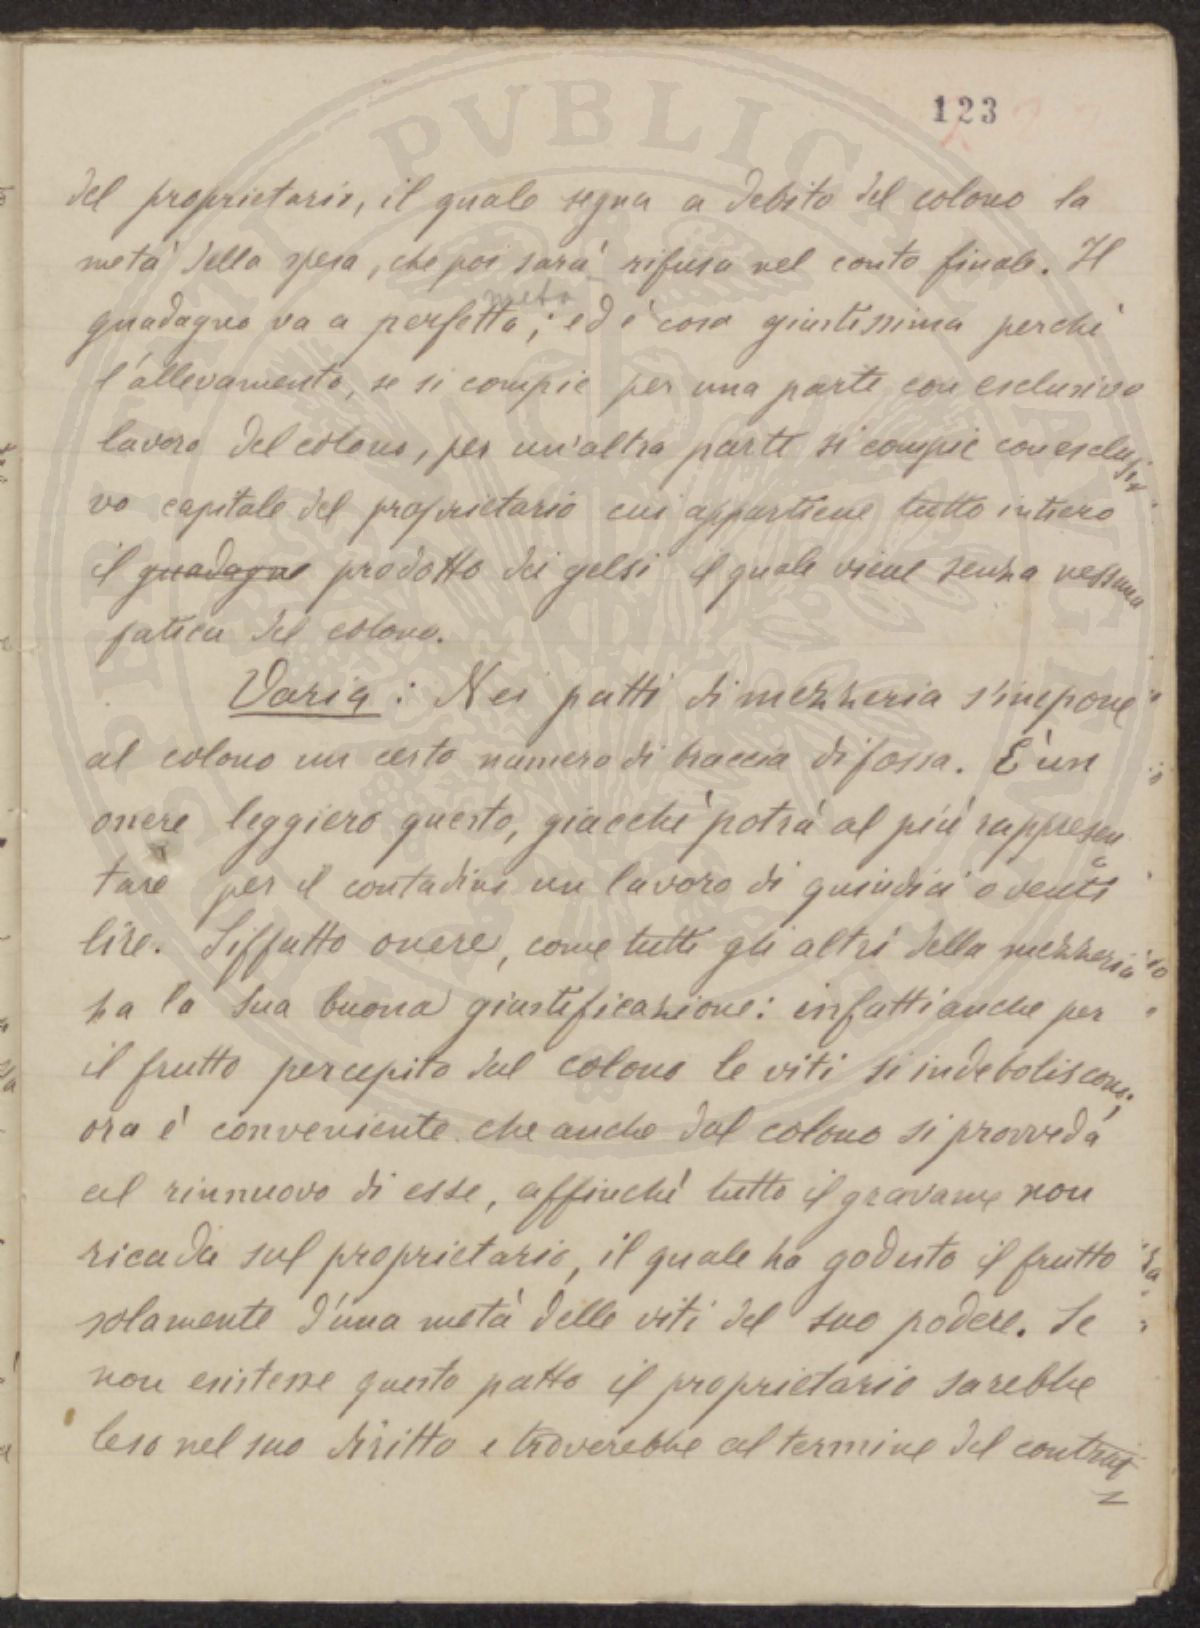 123
del proprietario, il quale segna a debito del colono la
metà della spesa, che poi sarà rifusa nel conto finale. Il
metà
guadagno va a perfetta; ed è cosa giustissima perchè
l'allevamento, se si compie per una parte con esclusivo
lavoro del colono, per un'altra parte si compie con esclusi=
vo capitale del proprietario cui appartiene tutto intiero
il guadagno prodotto dei gelsi il quale viene senza nessuna
fatica del colono.
Varia: Nei patti di mezzeria s'impone
al colono un certo numero di braccia di fossa. È un
onere leggiero questo, giacchè potrà al più rappresen
tare per il contadino un lavoro di quindici o venti
lire. Siffatto onere, come tutti gli altri della mezzeria
ha la sua buona giustificazione: infatti anche per
il frutto percepito dal colono le viti si indeboliscono;
ora è conveniente che anche dal colono si provveda
al rinnuovo di esse, affinchè tutto il gravame non
ricada sul proprietario, il quale ha goduto il frutto
solamente d'una metà delle viti del suo podere. Se
non esistesse questo patto il proprietario sarebbe
leso nel suo diritto e troverebbe al termine del contrat
=
PVBLICA